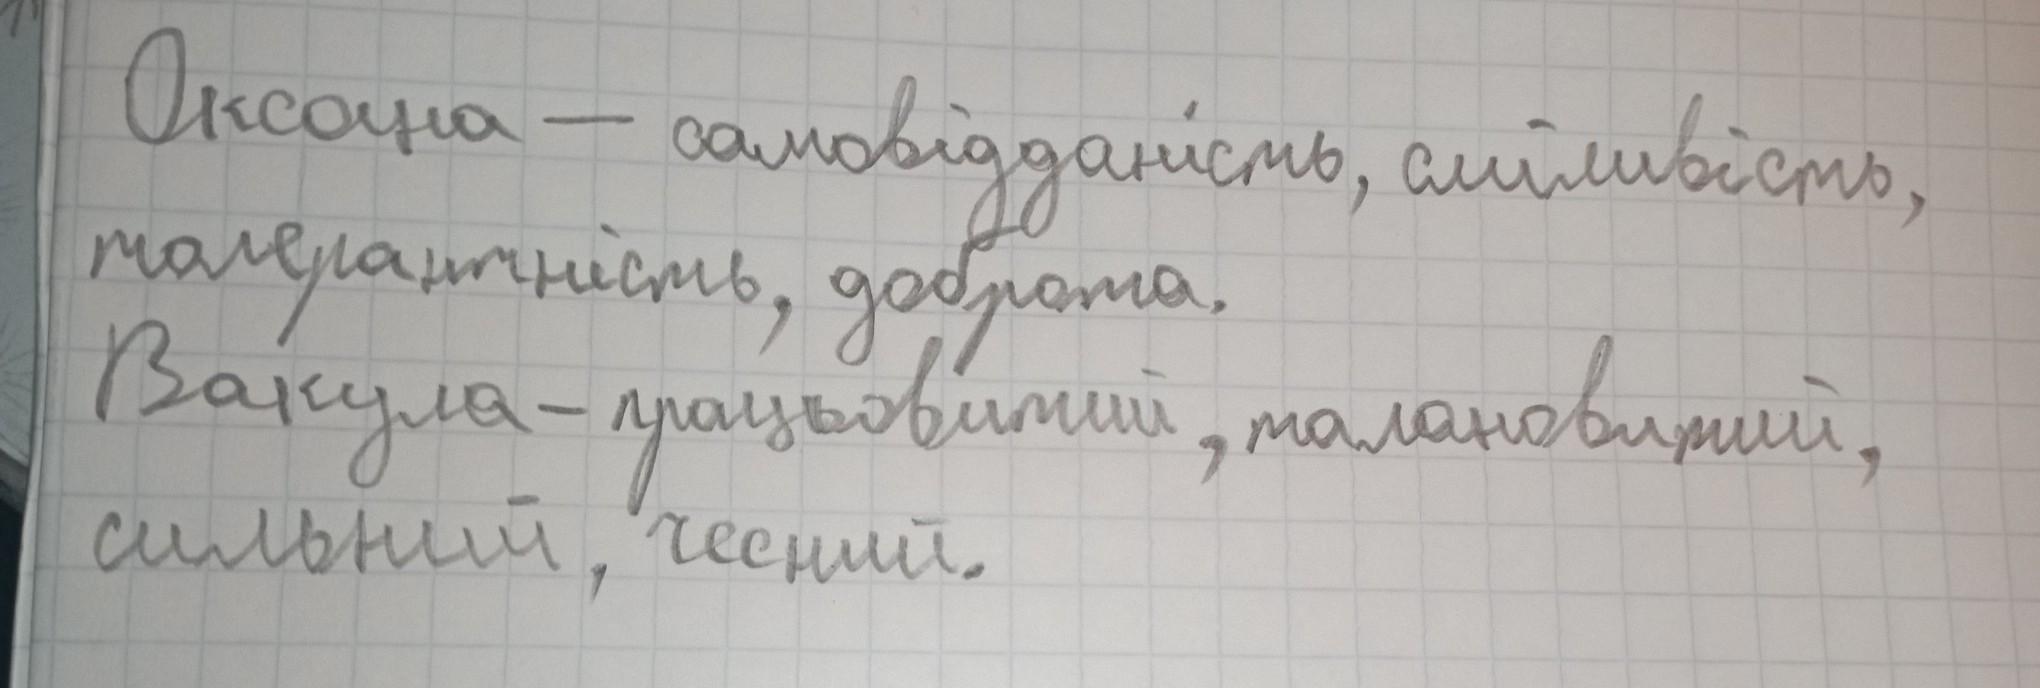 Оксана — самовідданість, сміливість,
толерантність, доброта.
Вакула – працьовитий, талановитий,
сильний, чесний.